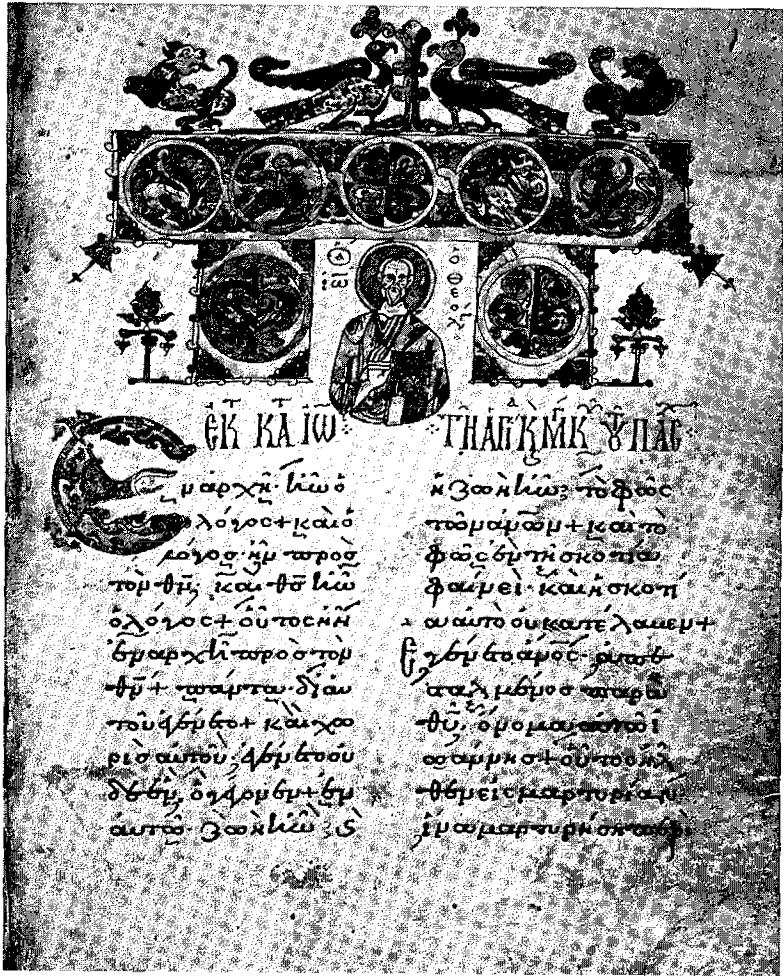 ἐκ τ κατ ἰω τῆ ἁγ κ μ κ
ἐν ἀρχῆ ἦν ὁ
λόγος + καὶ ὁ
λόγος ἦν πρὸς
τὸν θν̄· καὶ θς̄ ἦν
ὁ λόγος + οὗτος ἦν
ἐν ἀρχῆ πρὸς τὸν
θν̄ + πάντα δι αὐ
τοῦ ἐγένετο + καὶ χω
ρὶς αὐτοῦ ἐγένετο οὐ
δὲ ἕν, ὃ γέγονεν + ἐν
αὐτῶ ζωὴ ἦν· ϛ
ἡ ζωὴ ἦν· τὸ φῶς
τῶν ἀνω̄ν + καὶ τὸ
φῶς ἐν τῆ σκοτία
φαίνει· καὶ ἡ σκοτί
α αὐτὸ οὐ κατέλαβεν +
Ἐγένετο ἄνο̄ς· ἀπεσ
ταλμένος παρὰ
θῡ· ὄνομα αὐτῶ ἰ
ωάννης + οὗτος ἦλ
θεν εἰς μαρτυρίαν·
ἵνα μαρτυρήση περὶ